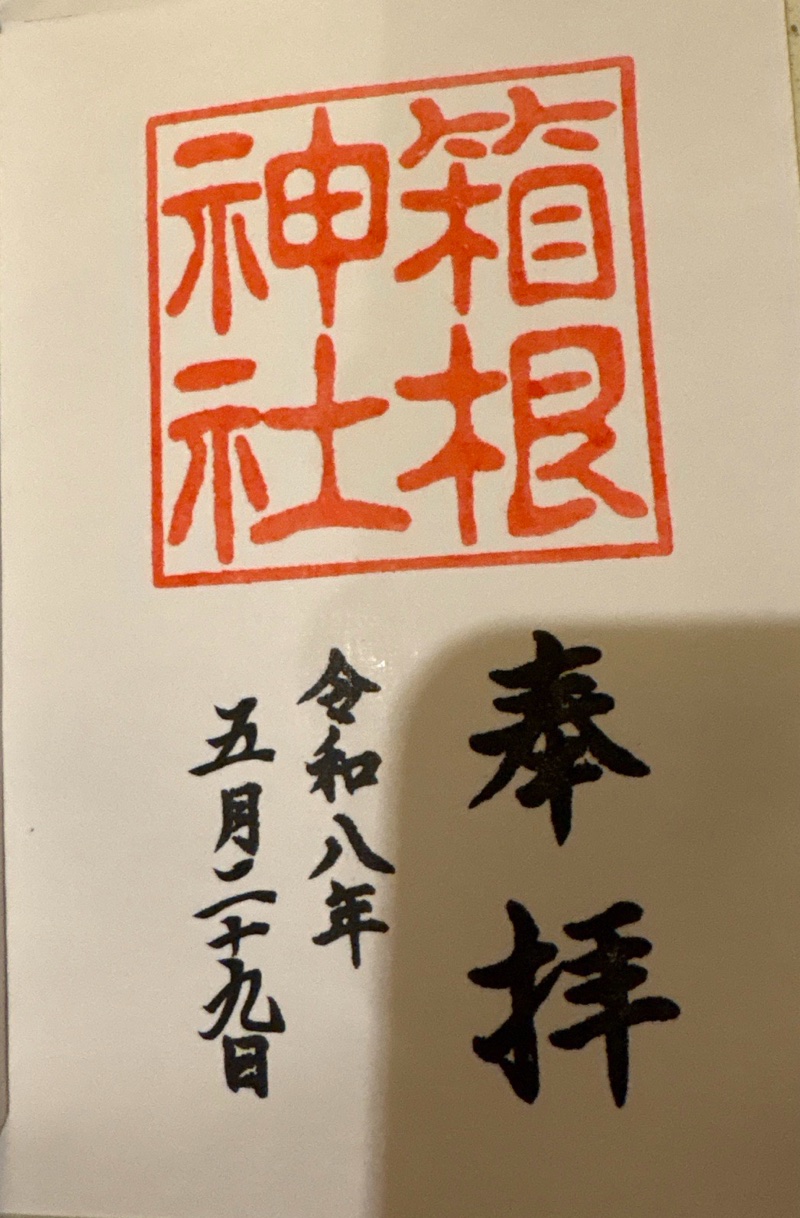 箱根
神社
奉拝
令和八年
五月二十九日